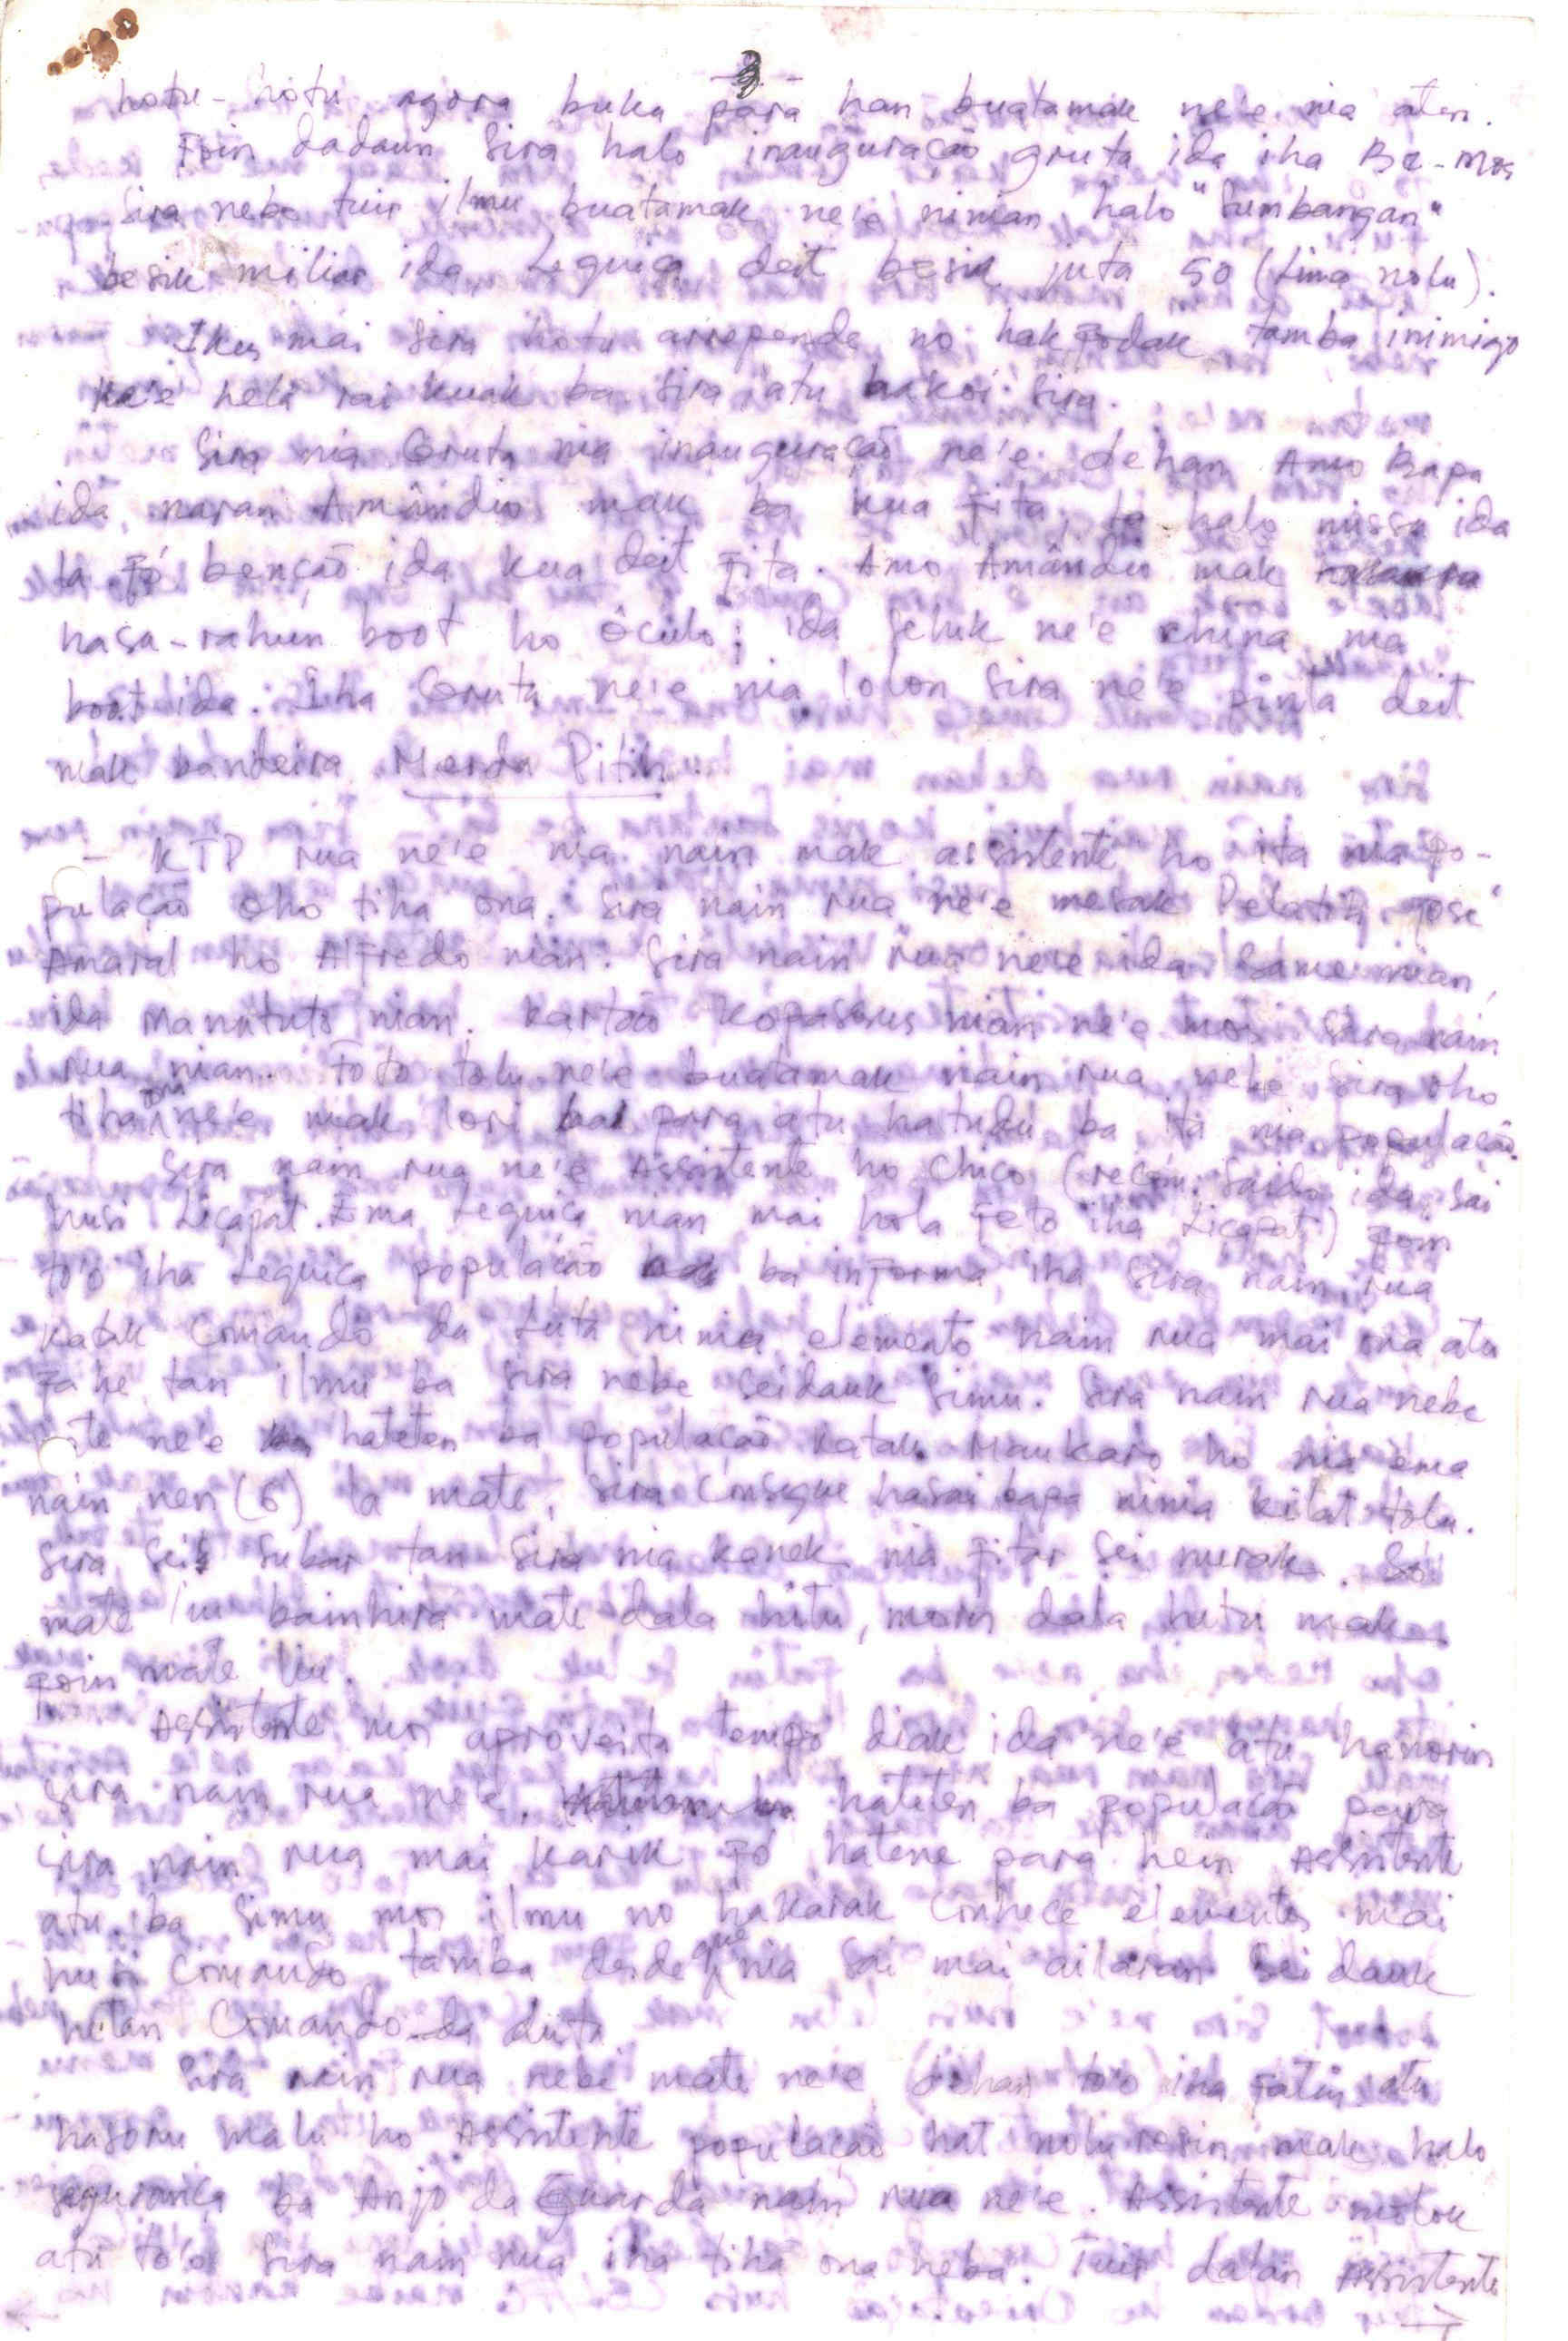 3
hotu-hotu agora buka para han buatamak ne'e nia aten.
Foin dadaun sira halo inauguração gruta ida iha Be-Mos
sira nebe tuir ilmu buatamak ne'e ninian halo "Sumbangan"
besik miliar ida, Leguiça deit besik juta 50 (Lima nolu).
Ikus mai sira hotu arrepende no hakfodak tamba inimigo
ke'e hela rai kuak ba sira atu hakoi sira.
Sira nia Gruta nia inauguração ne'e dehan Amo Bapa
ida naran Amândio mak ba kua fita, la halo missa ida
la fó benção ida kua deit fita. Amo Amândio mak
hasa-rahun boot ho óculo; ida seluk ne'e china nia
boot ida. Iha Gruta ne'e nia lolon sira ne'e pinta deit
mak bandeira Merda Pitih.
- KTP rua ne'e nia nain mak assistente ho ita nia po-
pulação oho tiha ona. Sira nain rua ne'e mesak Pelatih José
Amaral ho Alfredo nian. Sira nain rua ne'e ida Same nian,
ida Manututo nian. Kartão Kopassus nian ne'e mos sira nain
rua nian. Foto tolu ne'e buatamak nain rua nebe sira oho
tiha ona ne'e mak lori para atu hatudu ba ita nia população.
Sira nain rua ne'e Assistente ho Chico (recem. Saido ida, sai
husi Liçapat. Ema Leguiça nian mai hola feto iha Liçapat) foin
to'o iha Leguiça população ba informa iha sira nain rua
katak Comando da Luta ninia elemento nain rua mai ona atu
fahe tan ilmu ba sira nebe seidauk simu. Sira nain rua nebe
mate ne'e hateten ba população katak Maukaro ho nia ema
nain nen (6) la mate, sira consegue hasai bapa ninia kilat tolu.
Sira sei subar tan sira nia kanek nia fitar sei nurak. Só
mate liu bainhira mate dala hitu, moris dala hitu mak
foin mate liu.
Assistente mos aproveita tempo diak ida ne'e atu hanorin
sira nain rua ne'e. hateten ba população para
sira nain rua mai karik fó hatene para hein Assistente
atu ba simu mos ilmu no hakarak conhece elementos mai
husi Comando tamba desde que nia sai mai ailaran seidauk
hetan Comando da Luta
Sira nain rua nebe mate ne'e (dehan to'o) iha fatin atu
hasoru malu ho Assistente população hat nolu resin mak halo
segurança ba Anjo da Guarda nain rua ne'e. Assistente
atu to'o sira nain rua iha tiha ona neba. Tuir dalan Assistente
→